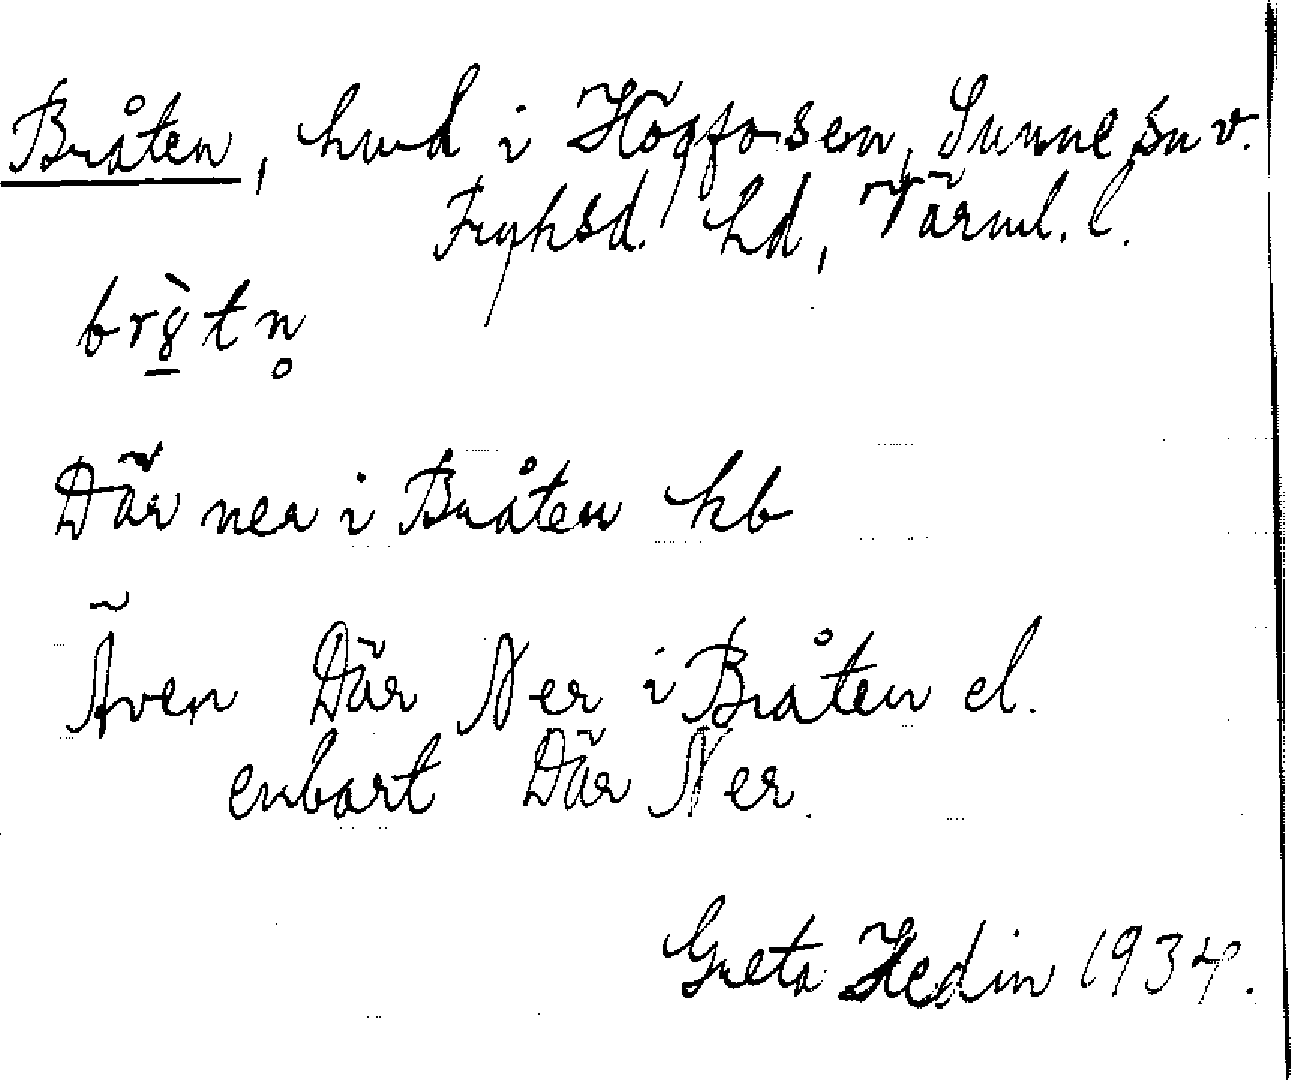 Bråten, hmd i Högfosen, Sunne sn v.
Fryksd. hd, Värml. l.
brὸ̱tn̥
Där ner i Bråten hb
Även Där Ner i Bråten el.
enbart Där Ner.
Greta Hedin 1934.